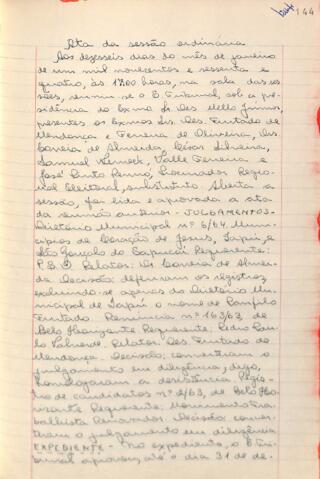 144
Ata da sessão ordinária
Aos dezesseis dias do mês de janeiro
de um mil novecentos e sessenta e
quatro, às 17,00 horas, na sala das ses
sões, reuniu-se o E. Tribunal, sob a pre
sidência do Exmo Sr. Des. Mello Júnior,
presentes os Exmos Srs. Des. Furtado de
Mendonça e Ferreira de Oliveira, Drs.
Correia de Almeida, César Silveira,
Samuel Werneck, Valle Ferreira e
José Pinto Renno, Procurador Regio
nal Eleitoral, substituto. Aberta a
sessão, foi lida e aprovada a ata
da reunião anterior. - JULGAMENTOS -
Diretório Municipal nº 6/64. Muni-
cípios de Coração de Jesus, Japú, e
São Gonçalo do Sapucaí. Requerente:
P.S.D. Relator: Dr. Correia de Almei
da. Decisão: deferiram os registros
excluindo-se apenas do Diretório Mu
nicipal de Japú o nome de
Furtado. Renúncia nº 163/63, de
Belo Horizonte. Requerente: Pedro Pau
lo Valverde. Relator: Des. Furtado de
Mendonça. Decisão: converteram o
julgamento em diligência, digo,
homologaram a desistência. Regis
tro de candidatos nº 2/63, de Belo Ho
rizonte. Requerente: Movimento Tra
balhista Renovador. Decisão: conver
teram o julgamento em diligência
EXPEDIENTE - No expediente, o E. Tri
bunal aprovou, até o dia 31 de de-